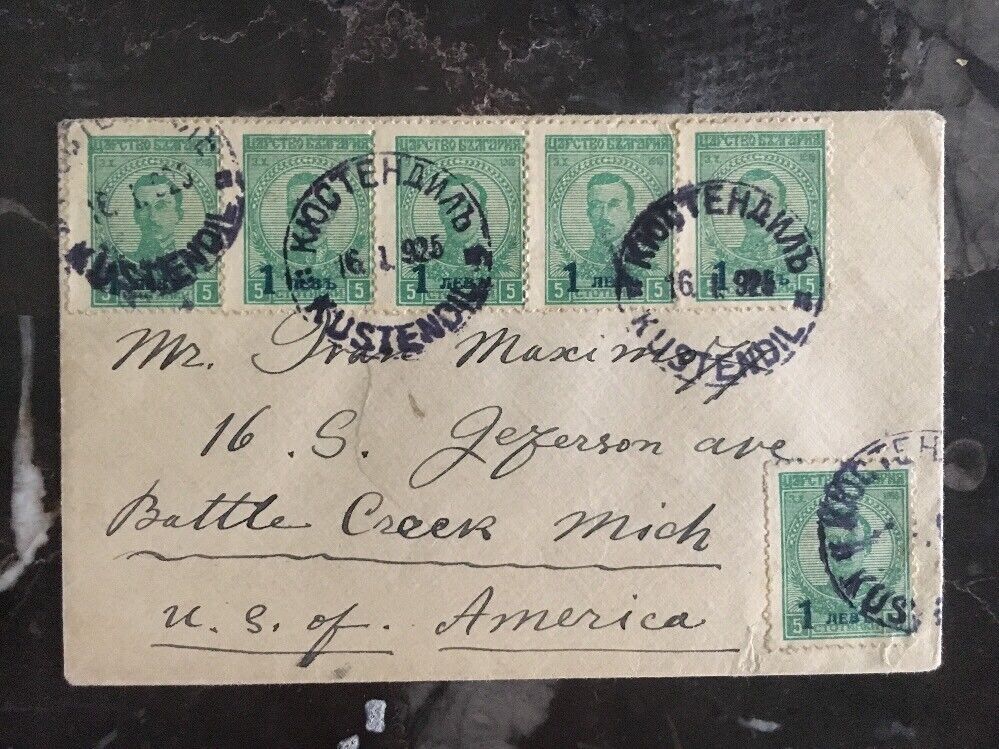 КЮСТЕНДИЛЪ
16.1.925
KUSTENDIL
ЦАРСТВО БЪЛГАРИЯ
1 ЛЕВЪ
5 СТОТИНКИ 5
КЮСТЕНДИЛЪ
16.1.925
KUSTENDIL
ЦАРСТВО БЪЛГАРИЯ
1 ЛЕВЪ
5 5
ЦАРСТВО БЪЛГАРИЯ
1 ЛЕВЪ
5 5
ЦАРСТВО БЪЛГАРИЯ
1 ЛЕВЪ
5 5
КЮСТЕНДИЛЪ
16.1.925
KUSTENDIL
Mr. Ivan Maximoff
16 . S. Jeferson ave.
Battle Creek Mich
U. S. of. America
ЦАРСТВО БЪЛГАРИЯ
1 ЛЕВЪ
5
КЮСТЕН
KUS